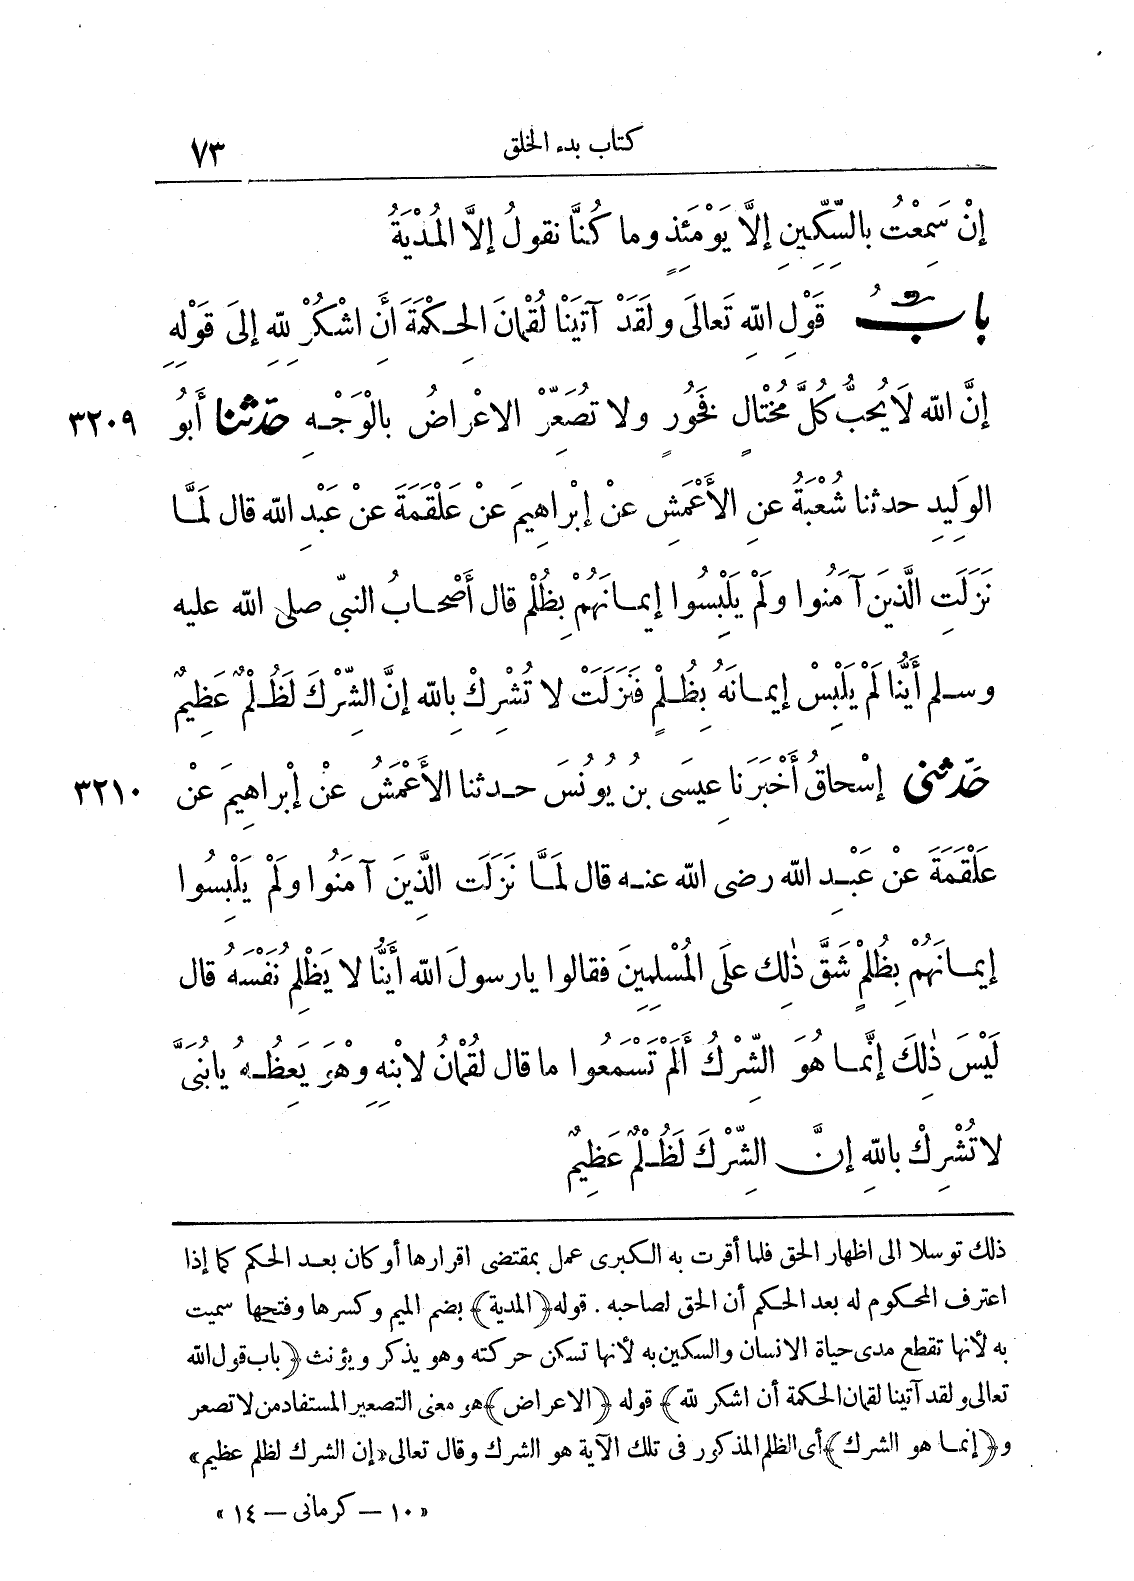 كتاب بدء الخلق
٧٣
إِنْ سَمِعْتُ بالسِّكِّينِ إلَّا يَوْمَئِذٍ وما كُنَّا نقولُ إلَّا المُدْيَةُ
بابُ قَوْلِ اللهِ تَعالى ولَقَدْ آتَيْنَا لُقْمَانَ الحِكْمَةَ أَنِ اشْكُرْ لِلّهِ إلى قَوْلِهِ
إنَّ الله لاَ يُحِبُّ كُلَّ مُخْتَالٍ فَخُورٍ ولا تُصَعِّرْ الاعْراضُ بالْوَجْهِ حَدّثنا أَبُو ٣٢٠٩
الوَلِيدِ حدثنا شُعْبَةُ عنِ الأَعْمَشِ عنْ إبْراهِيمَ عَنْ عَلْقَمَةَ عنْ عَبْدِ الله قال لمَّا
نَزَلَتِ الَّذينَ آمَنُوا ولَمْ يَلْبِسُوا إيمانَهُمْ بِظُلْم قال أَصْحابُ النبىّ صلى الله عليه
وسلم أَيُّنا لَمْ يَلْبِسْ إيمانَهُ بِظُلْمٍ فَنَزَلَتْ لا تُشْرِكْ بِالله إنَّ الشِّرْكَ لَظُلْمٌ عَظِيمٌ
حَدّثنى إسْحاقُ أَخْبَرَنا عِيسَى بنُ يُونُسَ حدثنا الأَعْمَشُ عنْ إبْراهِيمَ عَنْ ٣٢١٠
عَلْقَمَةَ عنْ عَبْدِ الله رضى الله عنه قال لمَّا نَزَلَتِ الَّذِينَ آمَنُوا ولَمْ يَلْبِسُوا
إيمانَهُمْ بِظُلْمٍ شَقَّ ذٰلِكَ علَى المُسْلِمِينَ فقالوا يارسولَ الله أَيُّنا لا يَظْلِمُ نَفْسَهُ قال
لَيْسَ ذٰلِكَ إنَّما هُوَ الشِّرْكُ أَلَمْ تَسْمَعُوا ما قال لُقْمانُ لِابْنِهِ وهْوَ يَعِظُهُ يابُنَىَّ
لا تُشْرِكْ بالله إنَّ الشِّرْكَ لَظُلْمٌ عَظِيمٌ
ذلك توسلا الى اظهار الحق فلما أقرت به الكبرى عمل بمقتضى اقرارها أو كان بعد الحكم كما إذا
اعترف المحكوم له بعد الحكم أن الحق لصاحبه . قوله ﴿المدية﴾ بضم الميم وكسرها وفتحها سميت
به لأنها تقطع مدى حياة الانسان والسكين به لأنها تسكن حركته وهو يذكر ويؤنث ﴿باب قول الله
تعالى ولقد آتينا لقمان الحكمة أن اشكر لله﴾ قوله ﴿الاعراض﴾ هو معنى التصعير المستفاد من لا تصعر
و﴿إنما هو الشرك﴾ أى الظلم المذكور فى تلك الآية هو الشرك وقال تعالى «إن الشرك لظلم عظيم»
« ١٠ – كرمانى – ١٤ »